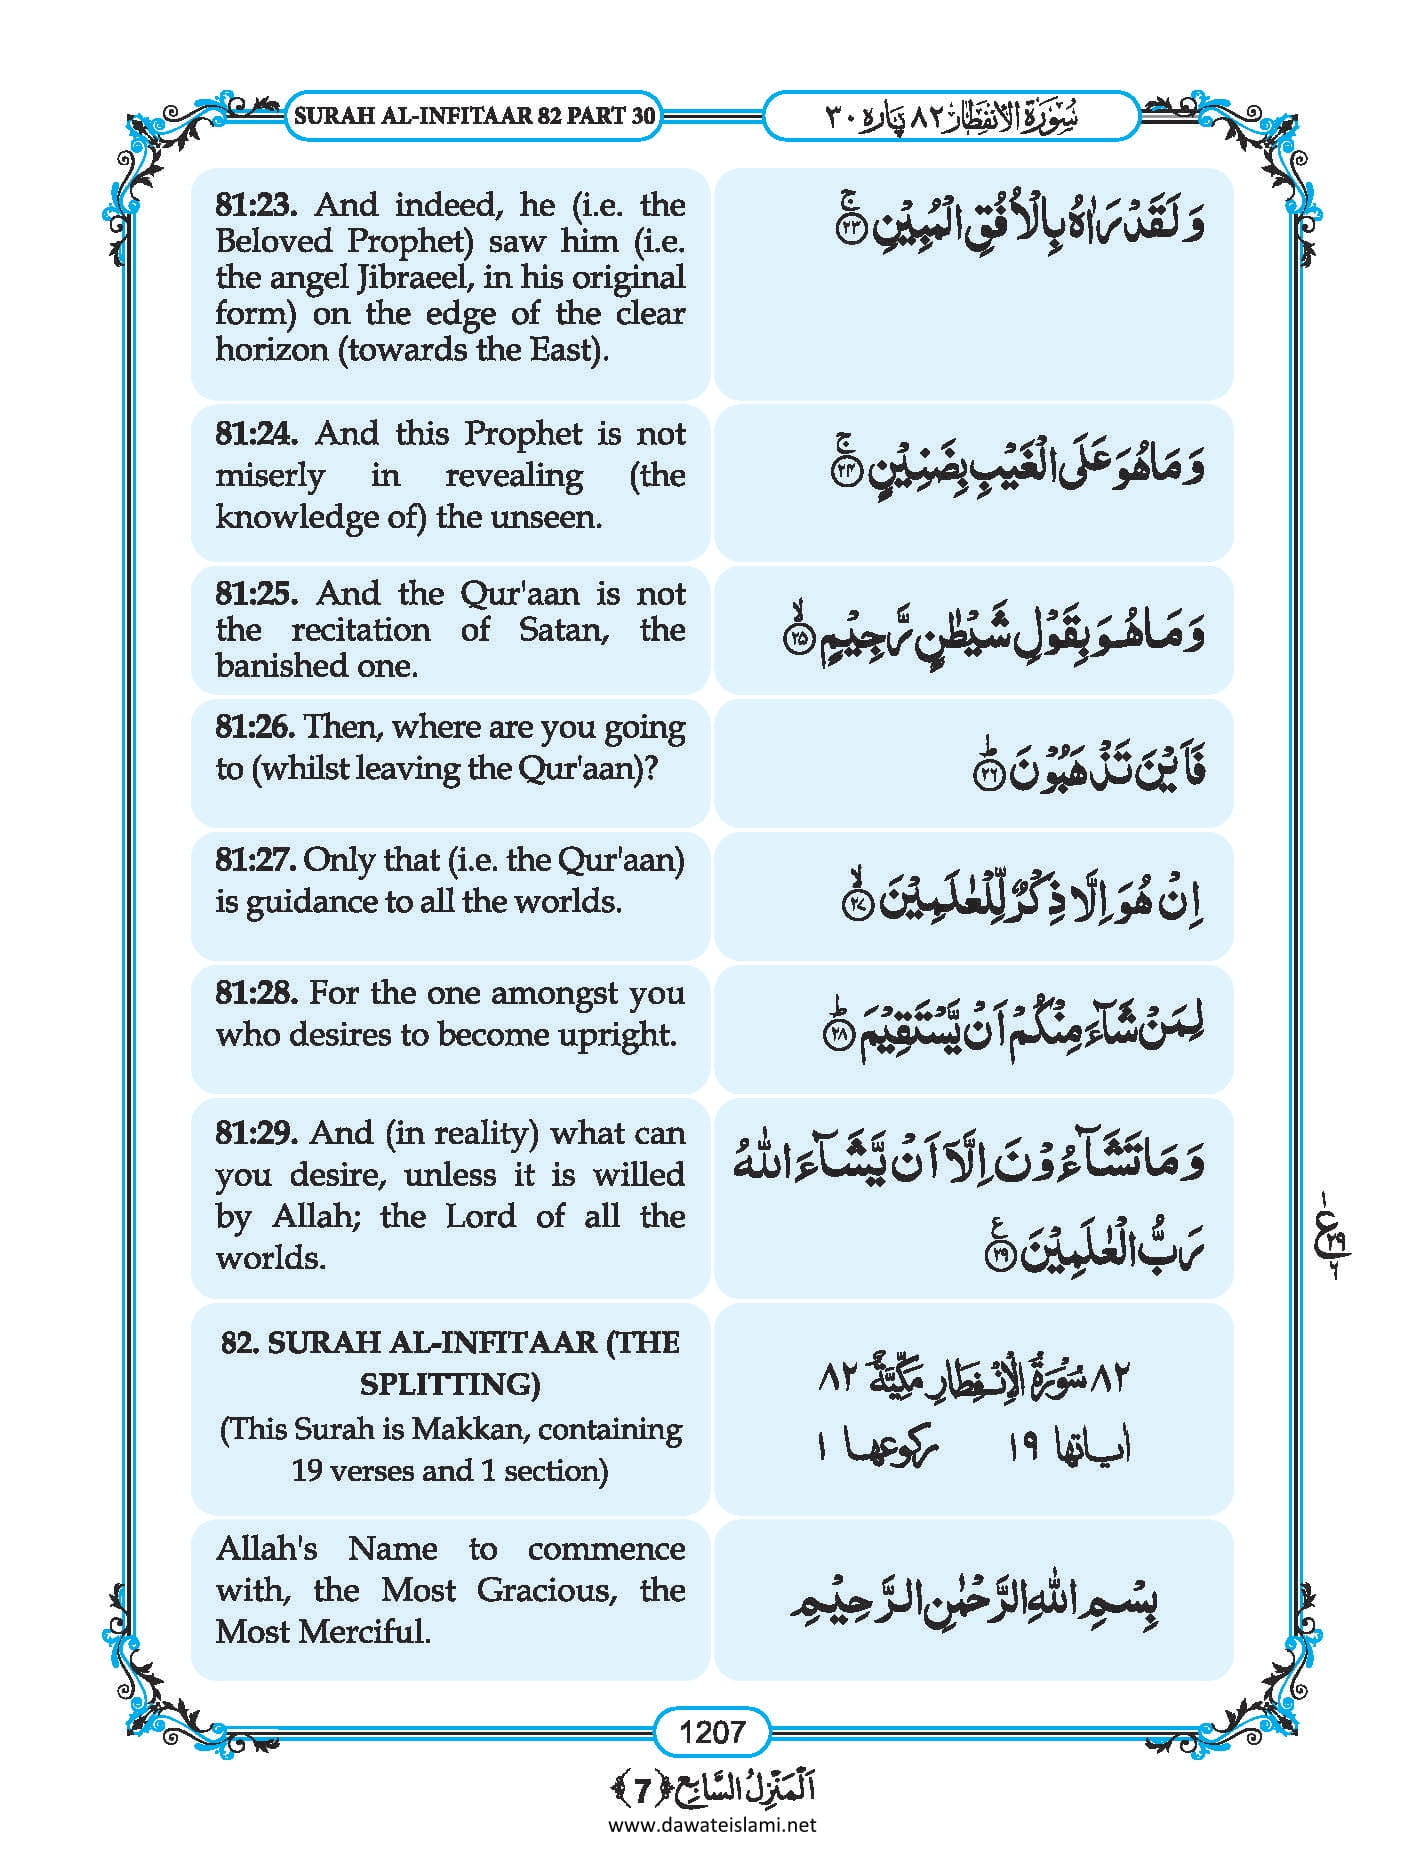 SURAH AL-INFITAAR 82 PART 30
سُوۡرَةُ الۡاِنۡفِطَار ٨٢ پَارہ ٣٠
81:23. And indeed, he (i.e. the
Beloved Prophet) saw him (i.e.
the angel Jibraeel, in his original
form) on the edge of the clear
horizon (towards the East).
وَ لَقَدۡ رَاٰهُ بِالۡاُفُقِ الۡمُبِیۡنِ ۚ﴿۲۳﴾
81:24. And this Prophet is not
miserly in revealing (the
knowledge of) the unseen.
وَ مَا هُوَ عَلَی الۡغَیۡبِ بِضَنِیۡنٍ ۚ﴿۲۴﴾
81:25. And the Qur'aan is not
the recitation of Satan, the
banished one.
وَ مَا هُوَ بِقَوۡلِ شَیۡطٰنٍ رَّجِیۡمٍ ۙ﴿۲۵﴾
81:26. Then, where are you going
to (whilst leaving the Qur'aan)?
فَاَیۡنَ تَذۡهَبُوۡنَ ؕ﴿۲۶﴾
81:27. Only that (i.e. the Qur'aan)
is guidance to all the worlds.
اِنۡ هُوَ اِلَّا ذِکۡرٌ لِّلۡعٰلَمِیۡنَ ۙ﴿۲۷﴾
81:28. For the one amongst you
who desires to become upright.
لِمَنۡ شَآءَ مِنۡکُمۡ اَنۡ یَّسۡتَقِیۡمَ ؕ﴿۲۸﴾
81:29. And (in reality) what can
you desire, unless it is willed
by Allah; the Lord of all the
worlds.
وَ مَا تَشَآءُوۡنَ اِلَّاۤ اَنۡ یَّشَآءَ اللّٰهُ
رَبُّ الۡعٰلَمِیۡنَ ﴿۲۹﴾ع
١
ع ٢٩
٦
82. SURAH AL-INFITAAR (THE
SPLITTING)
(This Surah is Makkan, containing
19 verses and 1 section)
٨٢ سُوۡرَةُ الۡاِنۡفِطَارِ مَکِّیَّةٌ ٨٢
اٰیاتها ١٩ رکوعها ١
Allah's Name to commence
with, the Most Gracious, the
Most Merciful.
بِسۡمِ اللّٰهِ الرَّحۡمٰنِ الرَّحِیۡمِ
1207
اَلۡمَنۡزِلُ السَّابِع ﴿7﴾
www.dawateislami.net